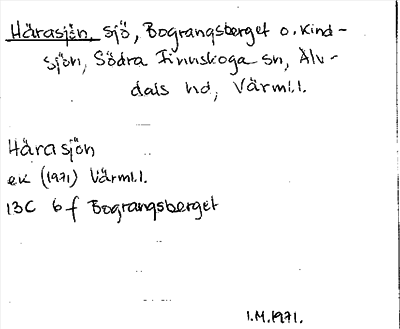 Härasjön, sjö, Bograngsberget o. Kind-
sjön, Södra Finnskoga sn, Älv-
dals hd, Värml.
Härasjön
ek (1971) Värml.
13C 6f Bograngsberget
I.M.1971.